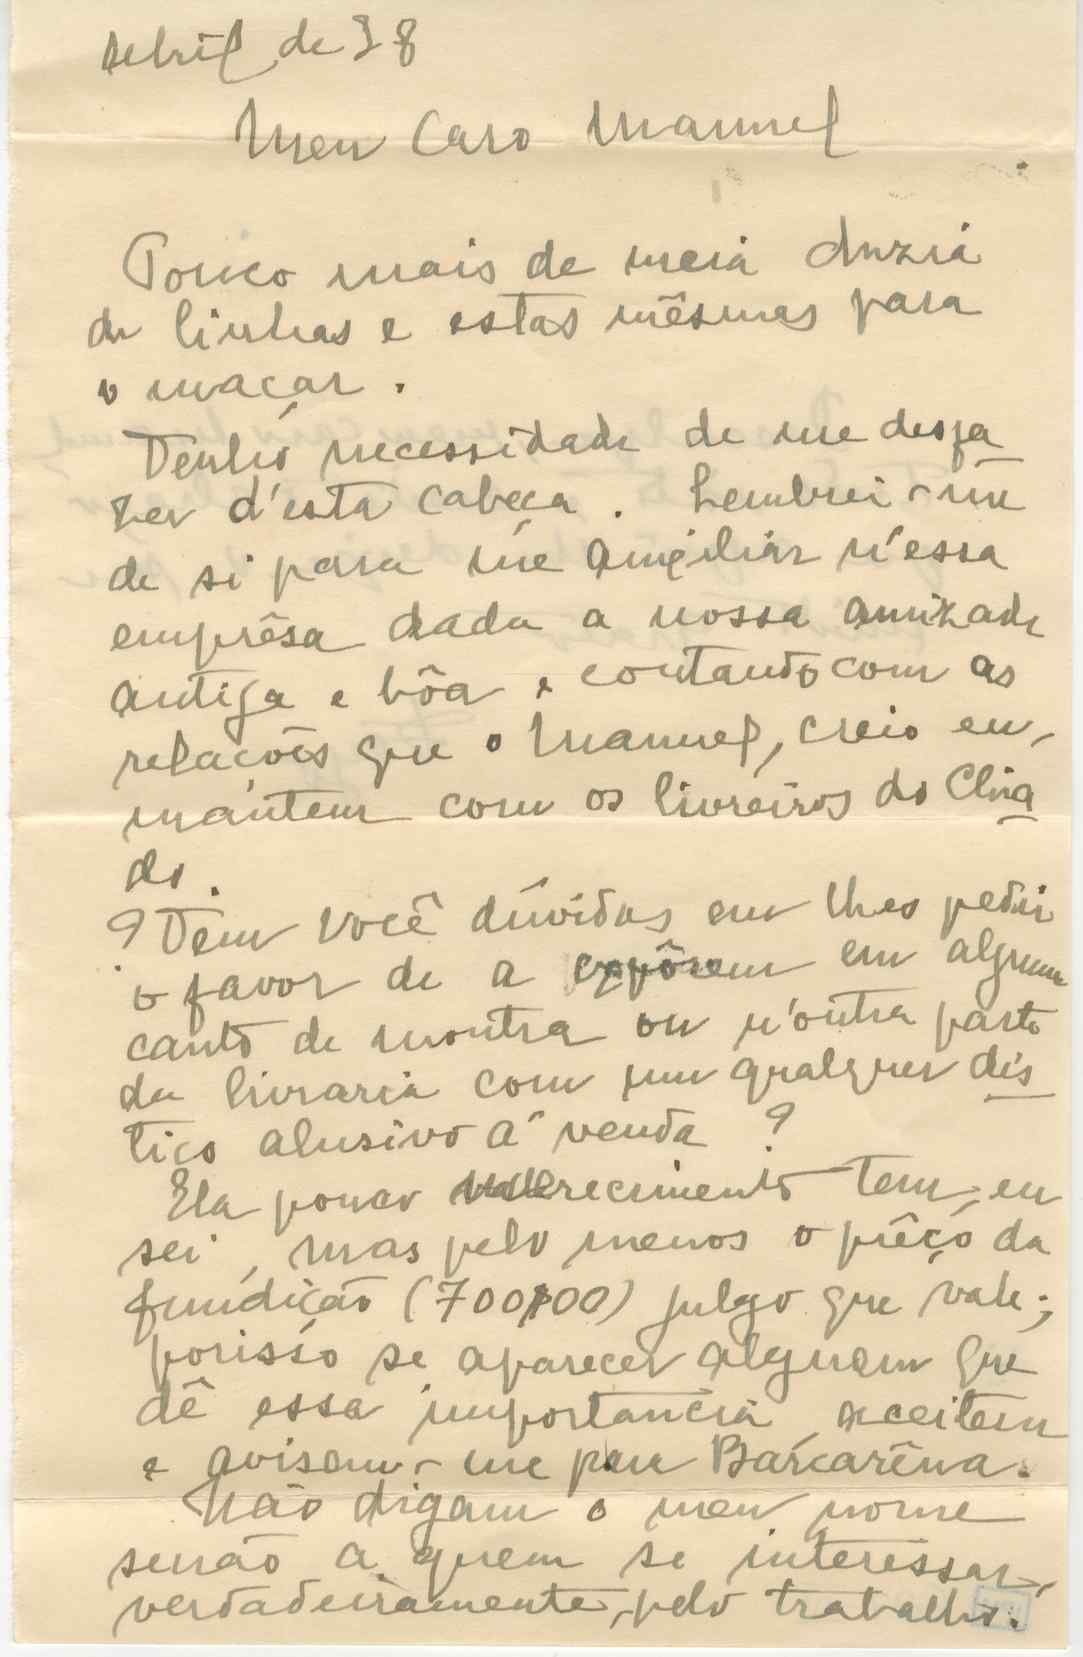 Abril de 38
Meu Caro Manuel
Pouco mais de meia duzia
de linhas e estas mêsmas para
o maçar.
Tenho necessidade de me desfa
zer d'esta cabeça. Lembrei-me
de si para me auxiliar n'essa
emprêsa dada a nossa amizade
antiga e bôa e contando com as
relações que o Manuel, creio eu,
mantem com os livreiros do Chia
do.
? Tem Você dúvidas em lhes pedir
o favor de a expôrem em algum
canto de montra ou n'outra parte
da livraria com um qualquer dis
tico alusivo á venda ?
Ela pouco merecimento tem, eu
sei, mas pelo menos o prêço da
fundição (700$00) julgo que vale;
porisso se aparecer alguem que
dê essa importancia aceitem
e avisem-me para Barcarêna.
Não digam o meu nome
senão a quem se interessar,
verdadeiramente, pelo trabalho.